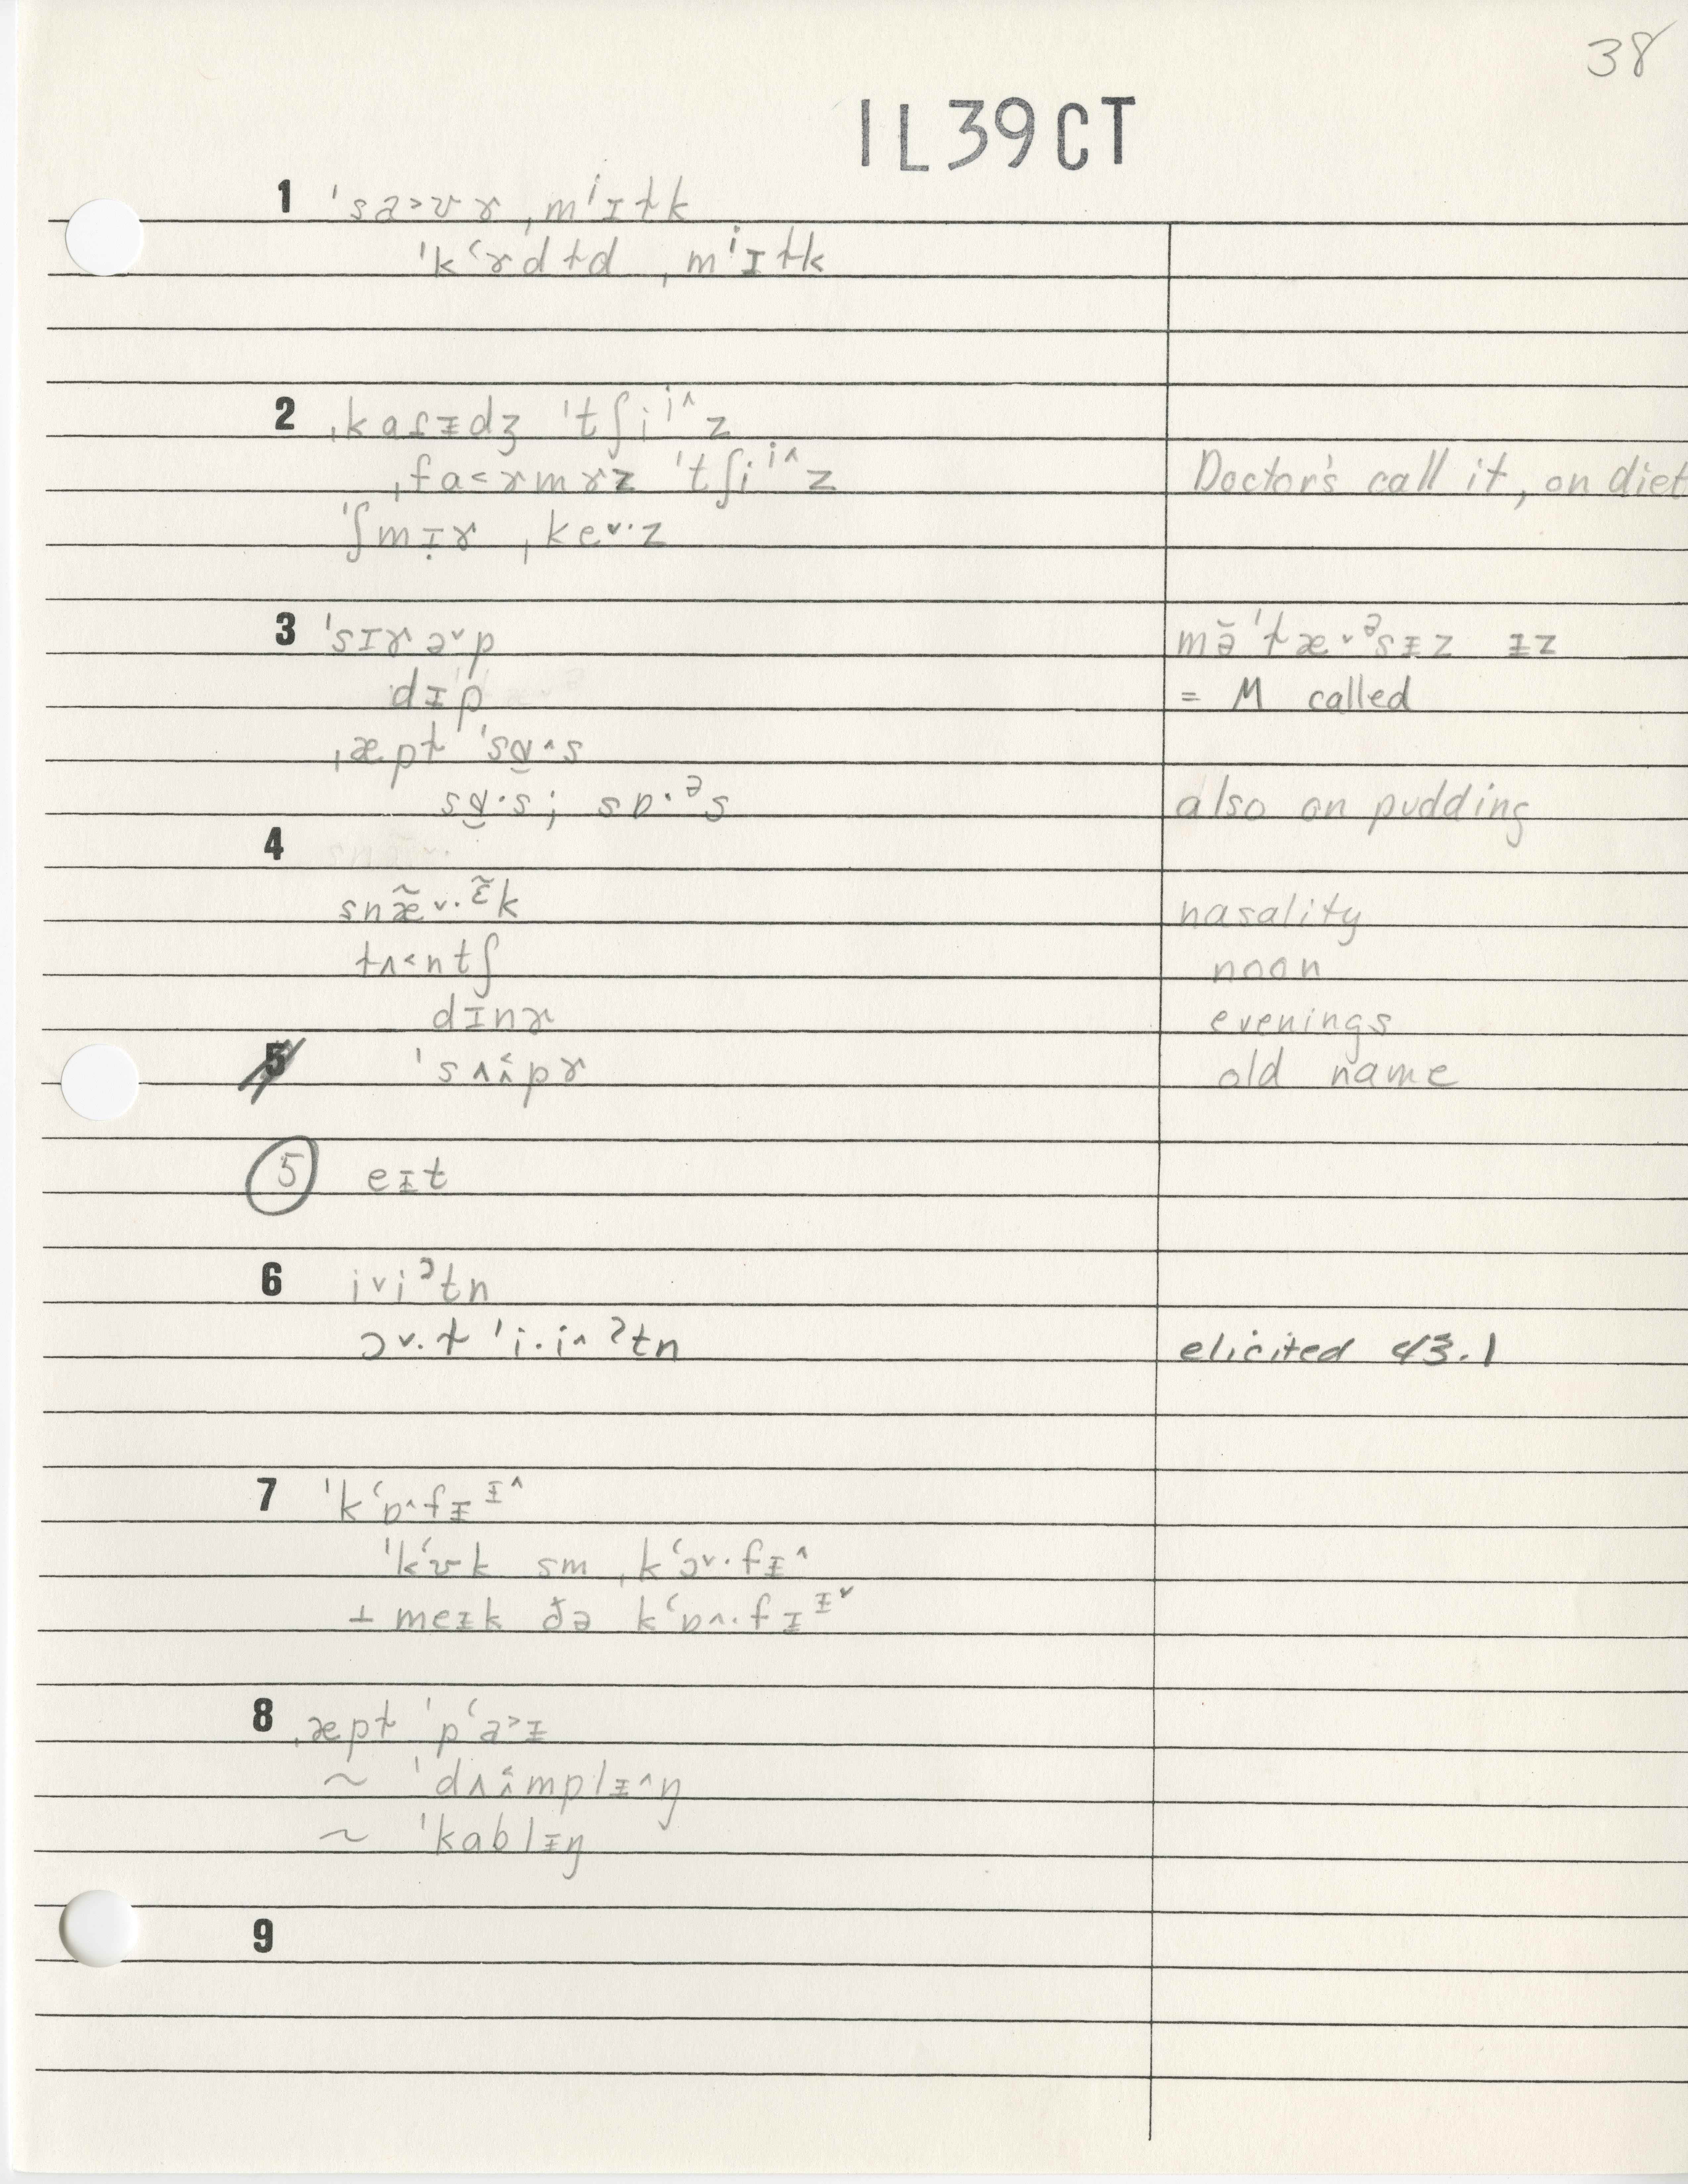 38
IL39CT
1 ˈsa˃ʊɚ ˌmⁱɪɫk
ˈkʻɚdɫd ˌmⁱɪɫk
2 ˌkaɾᵻdʒ ˈtʃiⁱ^z
ˌfa˂ɚmɚz ˈtʃiⁱ^z Doctor's call it, on diet
ˈʃmɪ̣ɚ ˌke˅·z
3 ˈsɪɚə˅p mə̆ˈɫæ˅ᵊsᵻz ᵻz
dɪp = M called
ˌæpɫ ˈsɑ̮^s
sɑ̮·s; sɒ·ᵊs also on pudding
4
snæ̃˅·ɛ̃k nasality
ɫʌ˂ntʃ noon
dɪnɚ evenings
5 ˈsʌʌ̂˂pɚ old name
5 eɪt
6 i˅iˀtn
ɔ˅·ɫ ˈi·i^ˀtn elicited 43.1
7 ˈkʻɒ^fᵻᵻ^
ˈkʻʊk sm ˌkʻɔ˅·fᵻ^
⊥ meᵻk ðə kʻɒ^·fɪᵻ˅
8 ˌæpɫ ˈpʻa˃ᵻ
~ ˈdʌʌ̂˂mplᵻ^ŋ
~ ˈkablᵻŋ
9